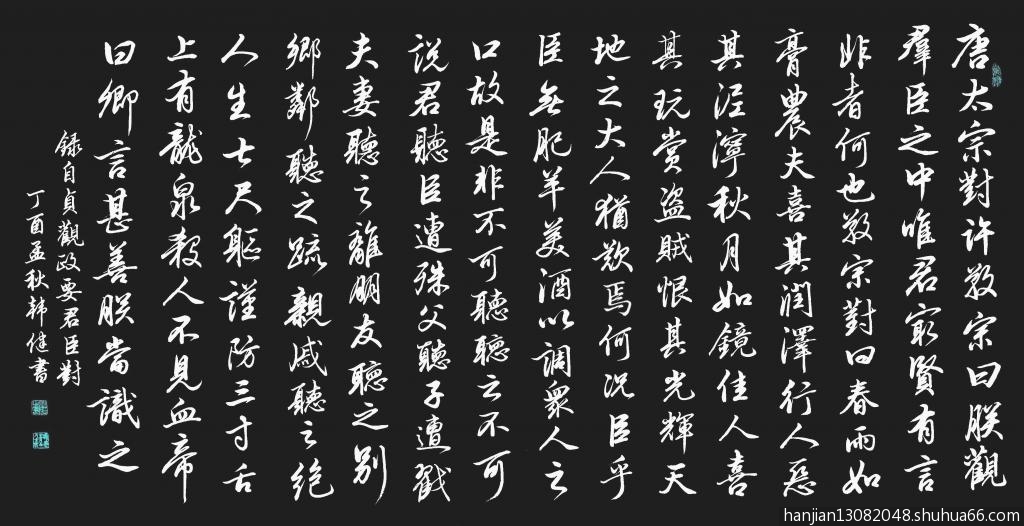 唐太宗對許敬宗曰朕觀
羣臣之中唯君最賢有言
非者何也敬宗對曰春雨如
膏農夫喜其潤澤行人惡
其泥濘秋月如鏡佳人喜
其玩賞盜賊恨其光輝天
地之大人猶歎焉何況臣乎
臣無肥羊美酒以調衆人之
口故是非不可聽聽之不可
說君聽臣遭殊父聽子遭戮
夫妻聽之離朋友聽之別
鄉鄰聽之疏親戚聽之絕
人生七尺軀謹防三寸舌
上有龍泉殺人不見血帝
曰卿言甚善朕當識之
錄自貞觀政要君臣對
丁酉孟秋韓健書
hanjian13082048.shuhua66.com